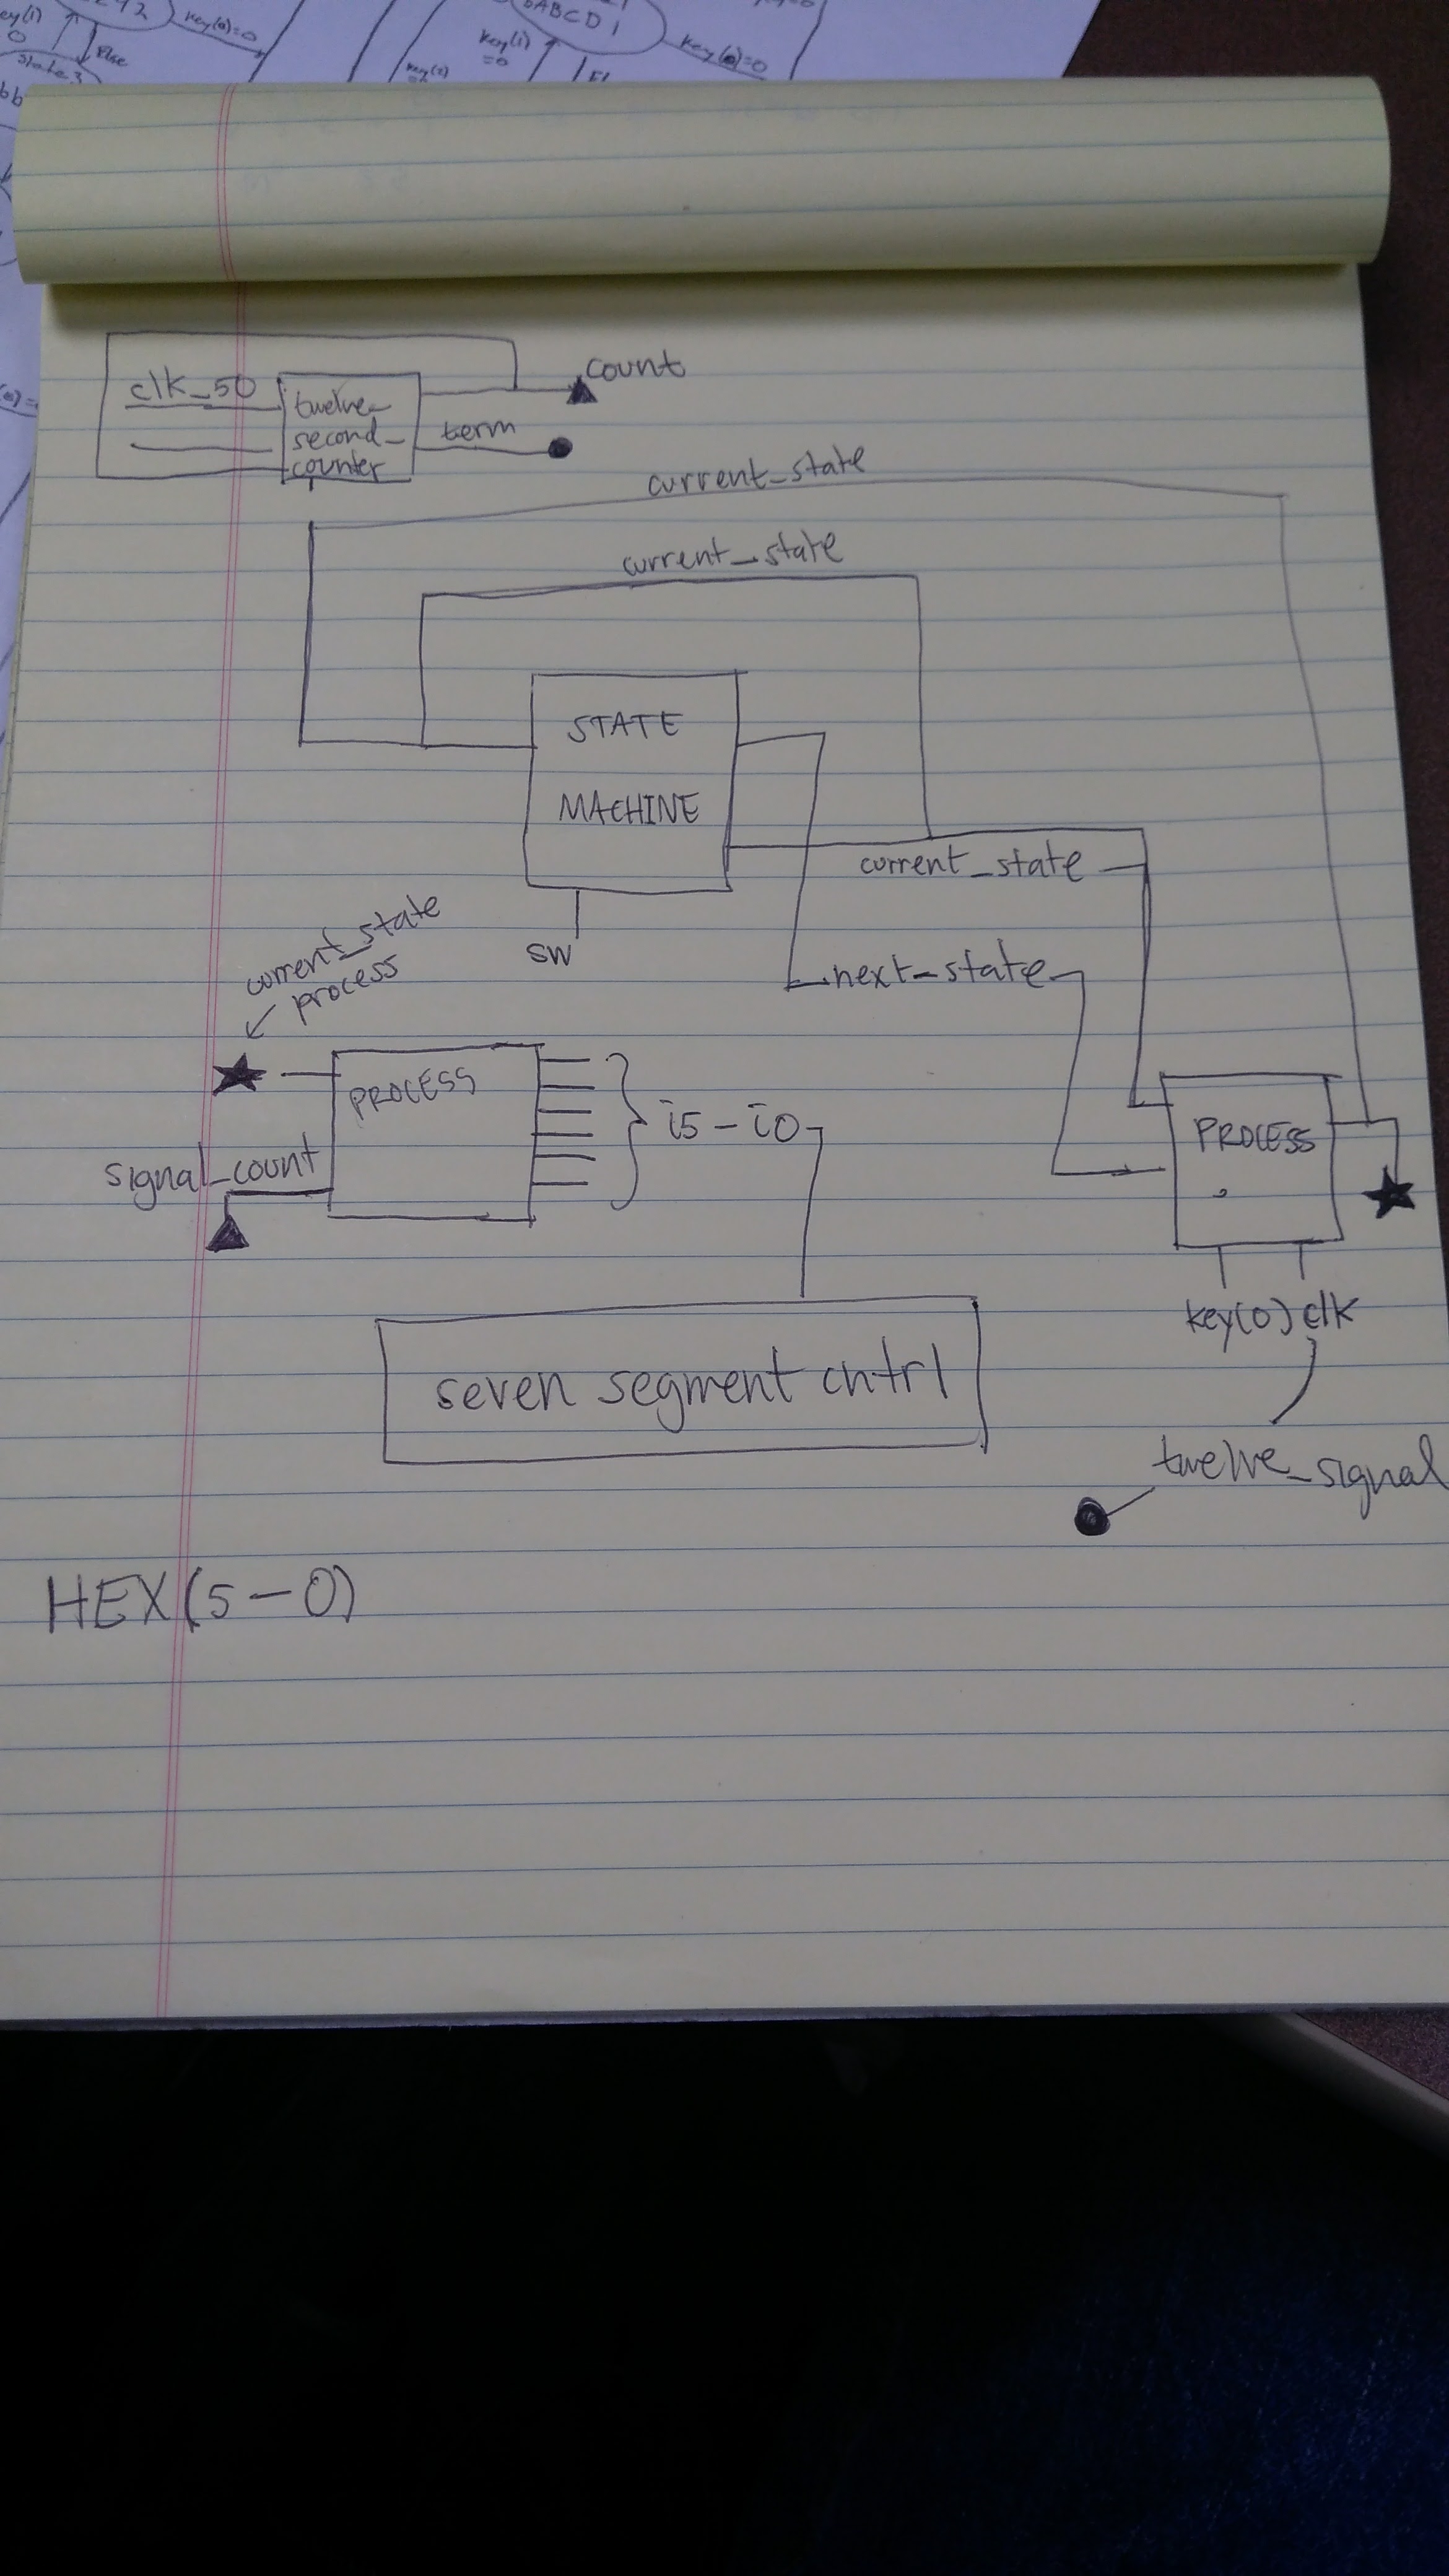 key(0)=0
else
state 3
bb
ABCD 1
key(1)
=0
key(0)=0
clk_50
twelve_
second_
counter
count
term
current_state
current_state
STATE
MACHINE
current_state
sw
next_state
current_state
process
PROCESS
i5 - i0
signal_count
PROCESS
key(0) clk
seven segment cntrl
twelve_signal
HEX(5-0)